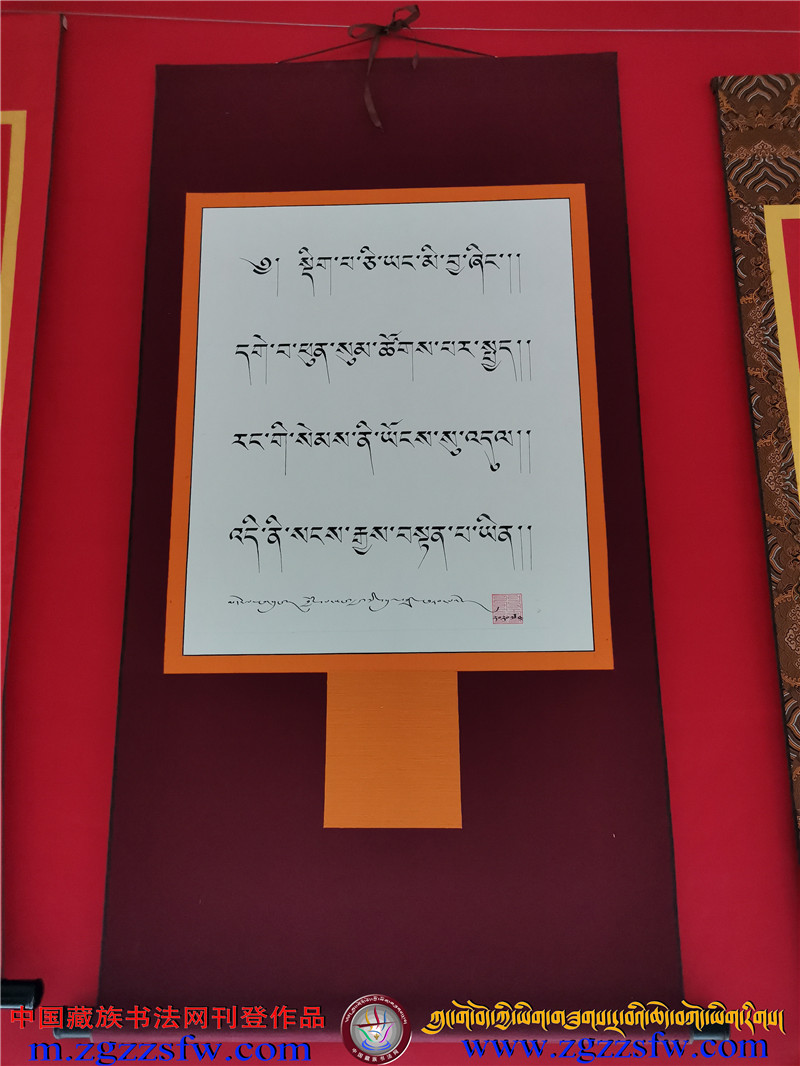 ༄། སྡིག་པ་ཅི་ཡང་མི་བྱ་ཞིང་།།
དགེ་བ་ཕུན་སུམ་ཚོགས་པར་སྤྱད།།
རང་གི་སེམས་ནི་ཡོངས་སུ་འདུལ།།
འདི་ནི་སངས་རྒྱས་བསྟན་པ་ཡིན།།
中国藏族书法网刊登作品
m.zgzzsfw.com
中国藏族书法网
www.zgzzsfw.com